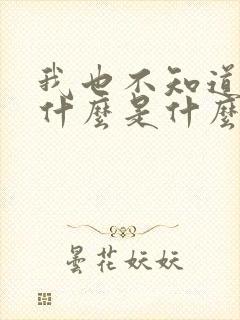 我也不知道
什麼是什麼
曇花妖妖